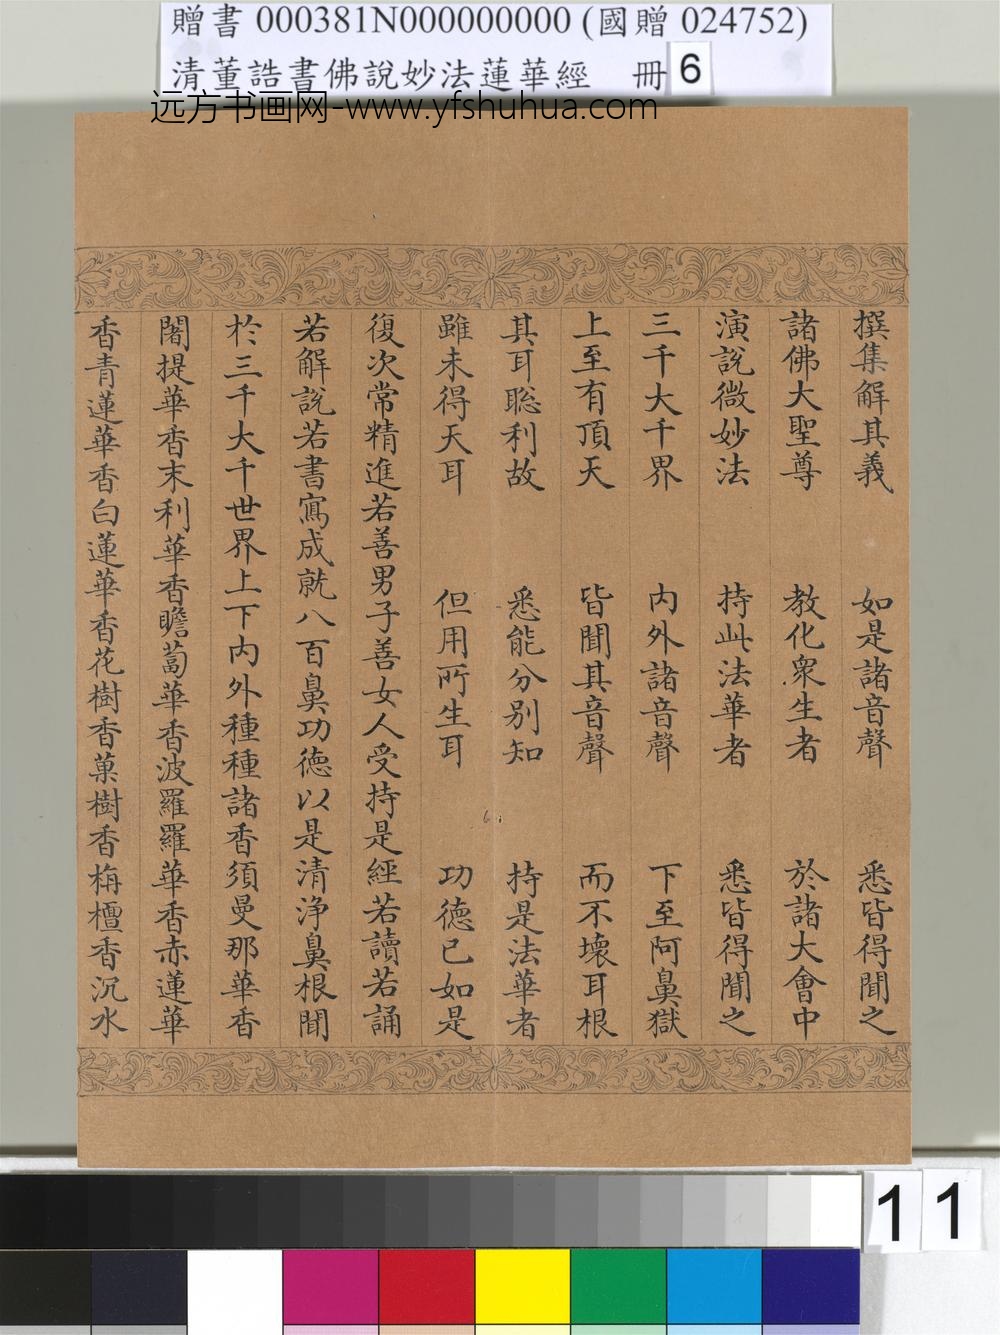 贈書 000381N000000000 (國贈 024752)
清董誥書佛說妙法蓮華經 冊 6
远方书画网-www.yfshuhua.com
撰集解其義 如是諸音聲 悉皆得聞之
諸佛大聖尊 教化衆生者 於諸大會中
演說微妙法 持此法華者 悉皆得聞之
三千大千界 內外諸音聲 下至阿鼻獄
上至有頂天 皆聞其音聲 而不壞耳根
其耳聡利故 悉能分别知 持是法華者
雖未得天耳 但用所生耳 功德已如是
復次常精進若善男子善女人受持是經若讀若誦
若解說若書寫成就八百鼻功德以是清淨鼻根聞
於三千大千世界上下內外種種諸香須曼那華香
闍提華香末利華香瞻蔔華香波羅羅華香赤蓮華
香青蓮華香白蓮華香花樹香菓樹香栴檀香沉水
6
11